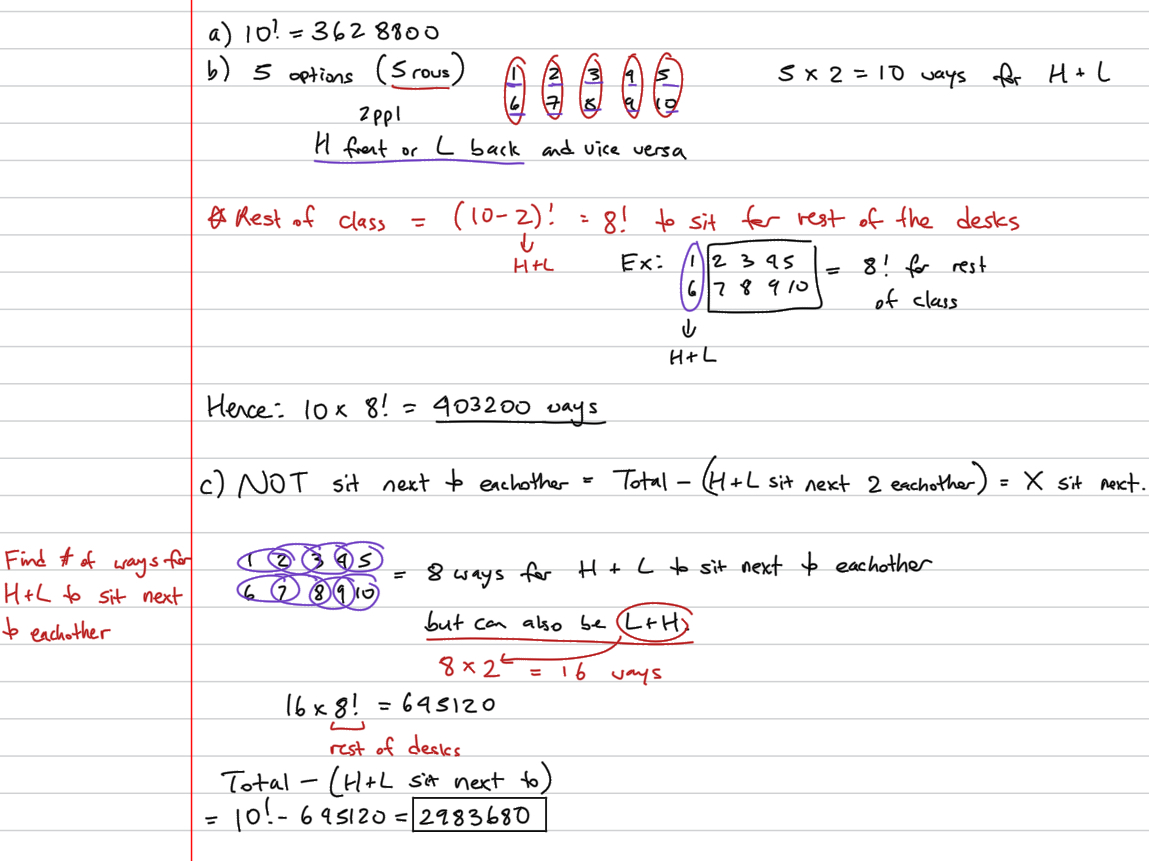 a) 10! = 3628800
b) 5 options (5 rows) 1 2 3 4 5 5 x 2 = 10 ways for H + L
6 7 8 9 10
2ppl
H front or L back and vice versa
* Rest of class = (10-2)! = 8! to sit for rest of the desks
↓
H+L
Ex: 1 2 3 4 5 = 8! for rest
6 7 8 9 10 of class
↓
H+L
Hence: 10 x 8! = 403200 ways
c) NOT sit next to eachother = Total - (H+L sit next 2 eachother) = X sit next.
Find # of ways for
H+L to sit next
to eachother
1 2 3 4 5 = 8 ways for H + L to sit next to eachother
6 7 8 9 10
but can also be L+H.
8 x 2 = 16 ways
16 x 8! = 645120
rest of desks
Total - (H+L sit next to)
= 10! - 645120 = 2983680